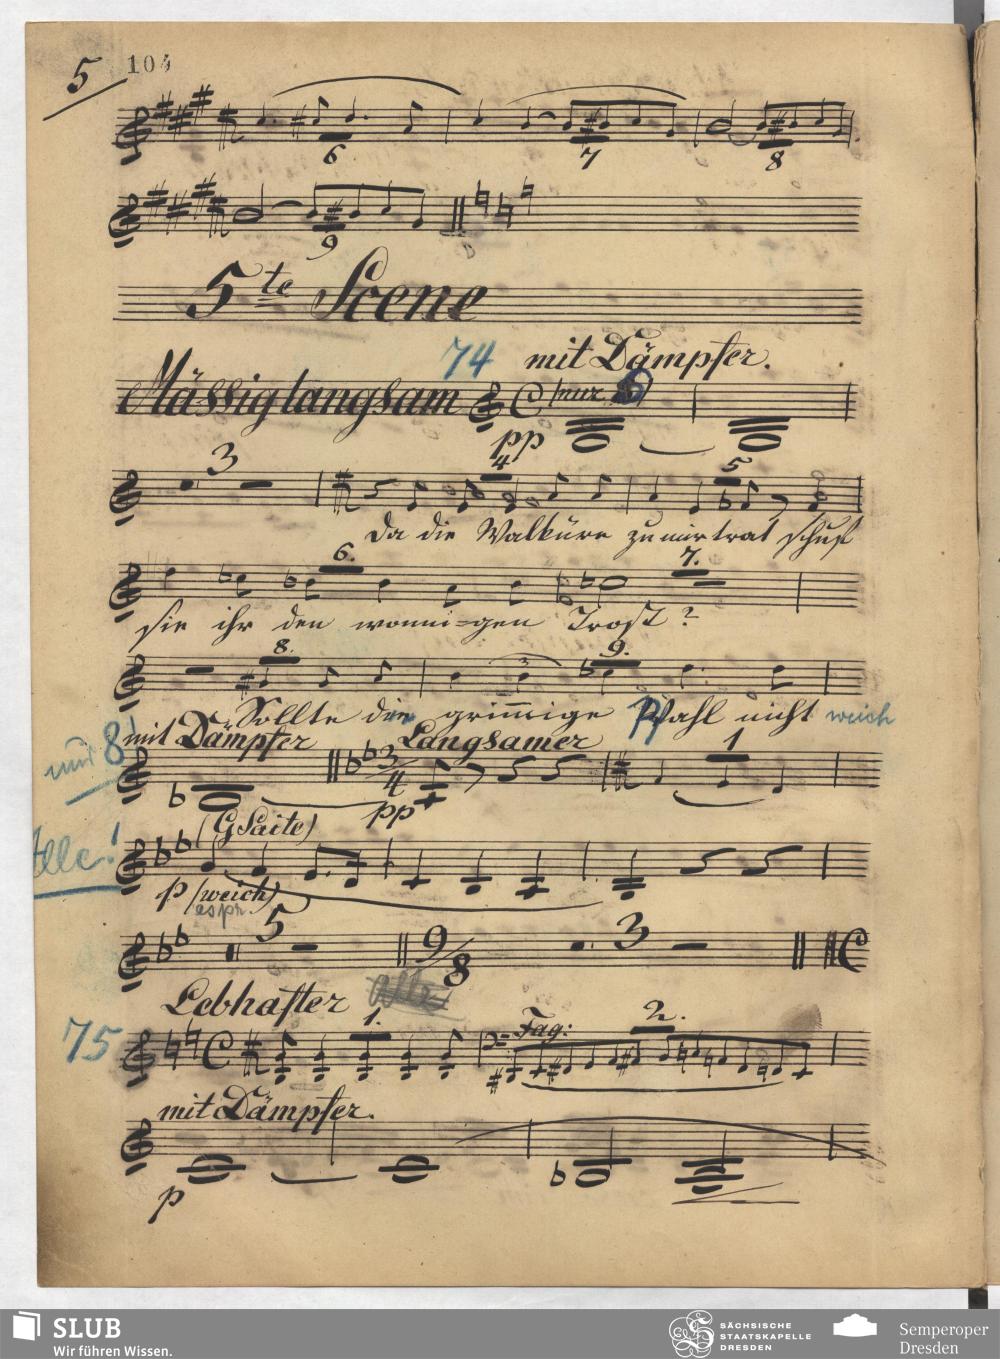 5 104
6 7 8
9
5te Scene
74 mit Dämpfer.
Mässig langsam (nur 6)
pp
3 4 5
Da die Walküre zu mir trat schuf
6. 7.
sie ihr den wonni=gen Trost?
8. 3 9.
Sollte die grimmige Wahl nicht weich
und 8! mit Dämpfer Langsamer 1
3/4 pp
Alle! (G Saite)
p (weich)
espr.
5 9/8 3
Lebhafter
75 1. Fag: 2.
mit Dämpfer.
p
SLUB
Wir führen Wissen.
SÄCHSISCHE
STAATSKAPELLE
DRESDEN
Semperoper
Dresden